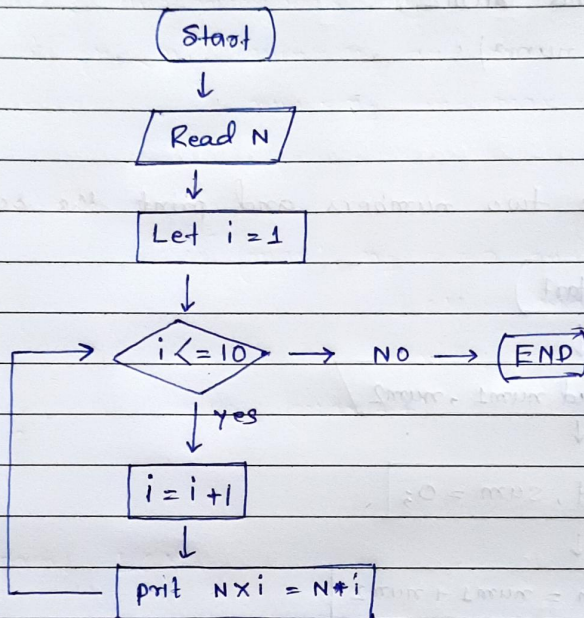 Start
Read N
Let i = 1
i <= 10 NO END
yes
i = i +1
prit N×i = N*i